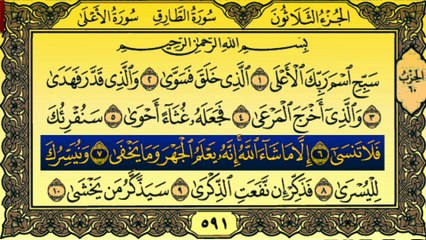 الجزء الثلاثون سورة الطارق سورة الأعلى
بسم الله الرحمن الرحيم
سَبِّحِ اسْمَ رَبِّكَ الْأَعْلَى ١ الَّذِي خَلَقَ فَسَوَّىٰ ٢ وَالَّذِي قَدَّرَ فَهَدَىٰ
٣ وَالَّذِي أَخْرَجَ الْمَرْعَىٰ ٤ فَجَعَلَهُ غُثَاءً أَحْوَىٰ ٥ سَنُقْرِئُكَ
فَلَا تَنسَىٰ ٦ إِلَّا مَا شَاءَ اللَّهُ إِنَّهُ يَعْلَمُ الْجَهْرَ وَمَا يَخْفَىٰ ٧ وَنُيَسِّرُكَ
لِلْيُسْرَىٰ ٨ فَذَكِّرْ إِن نَّفَعَتِ الذِّكْرَىٰ ٩ سَيَذَّكَّرُ مَن يَخْشَىٰ ١٠
الحزب
٦٠
٥٩١